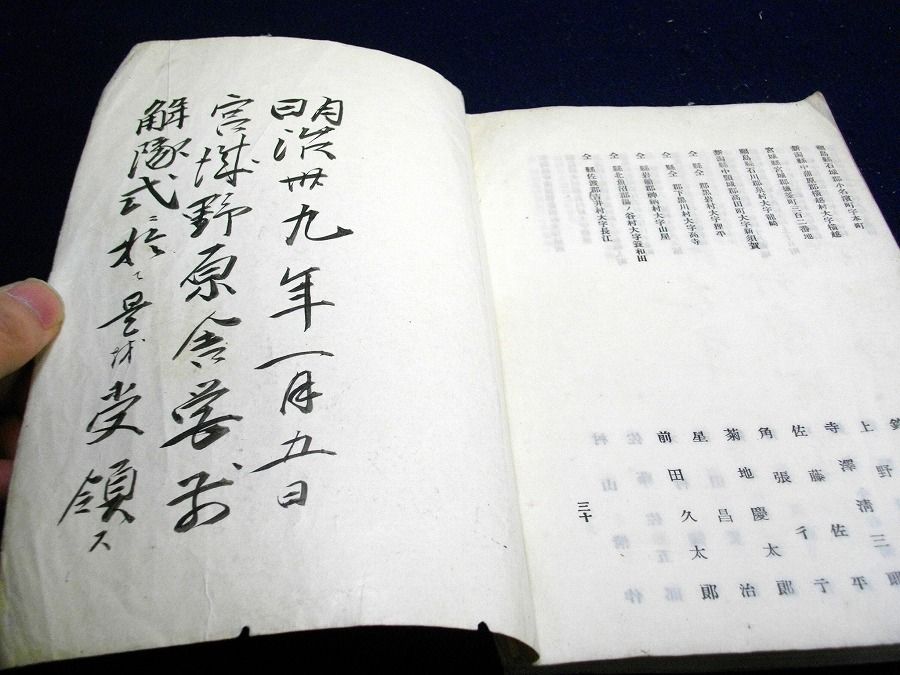 福島縣石城郡小名濱町字本町
新潟縣中蒲原郡横越村大字横越
宮城縣宮城郡鹽釜町三百二番地
福島縣石川郡泉村大字龍崎
新潟縣中頸城郡高田町大字新須賀
仝縣仝郡黒岩村大字
仝縣仝郡下黒川村大字高寺
仝縣岩船郡村大字山屋
仝縣北魚沼郡湯ノ谷村大字
仝縣佐渡郡吉井村大字長江
上野清三郎
寺澤佐平
佐藤行
角張慶太郎
菊地昌治
星
前田久太郎
三十
明治卅九年一月五日
宮城野原舎営前
解隊式ニ於テ是受領ス